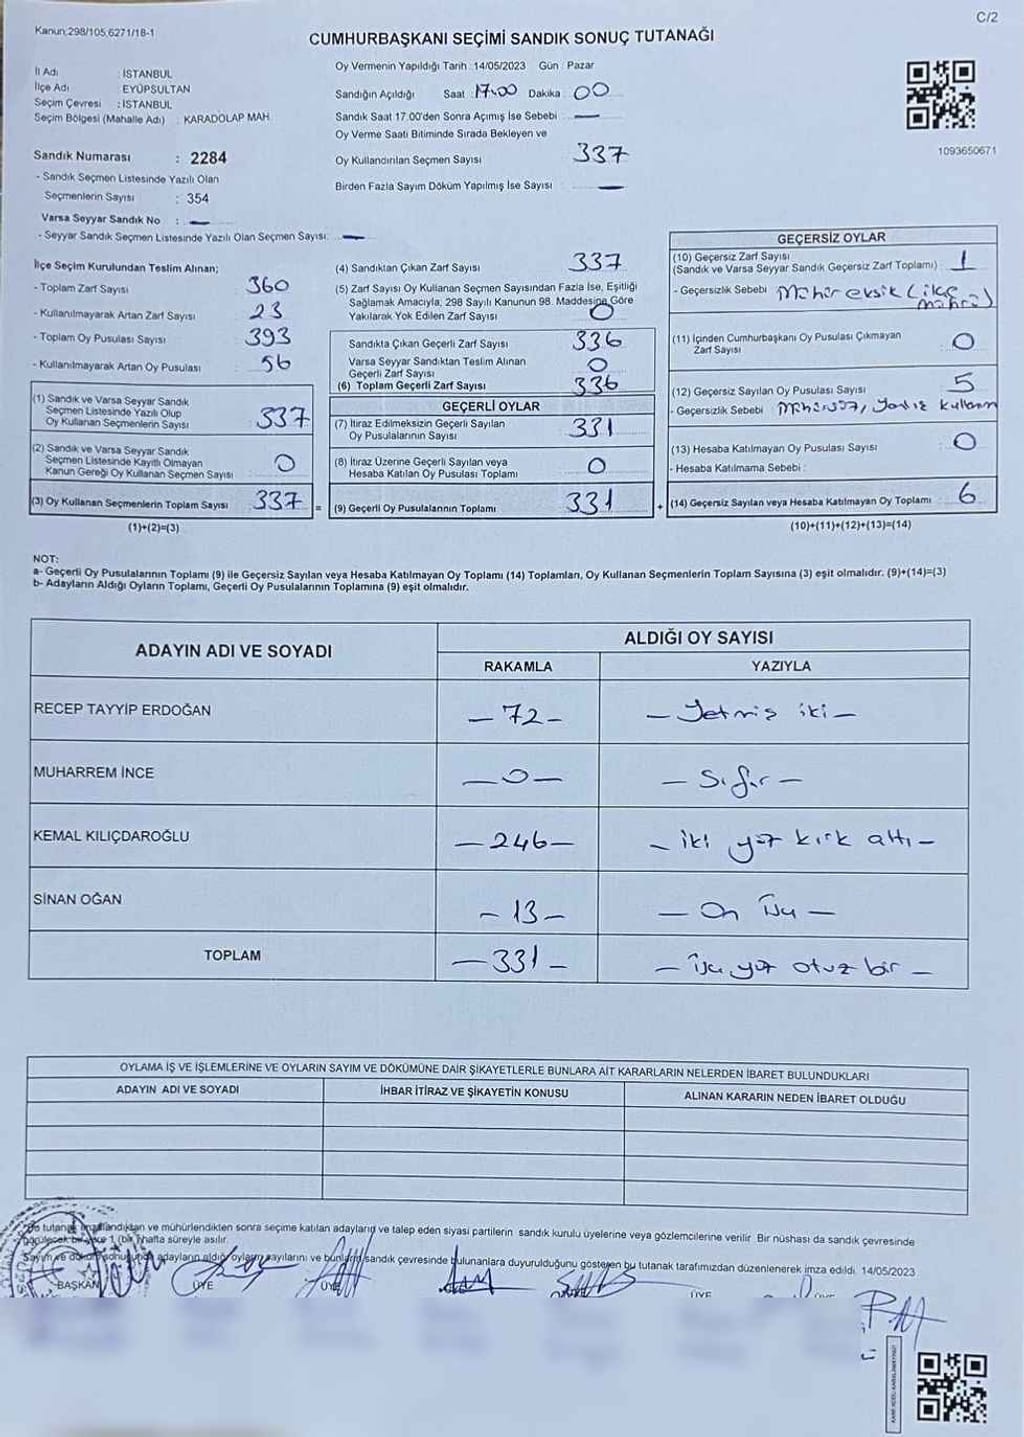 C/2
Kanun;298/105,6271/18-1
CUMHURBAŞKANI SEÇİMİ SANDIK SONUÇ TUTANAĞI
İl Adı : İSTANBUL
İlçe Adı : EYÜPSULTAN
Seçim Çevresi : İSTANBUL
Seçim Bölgesi (Mahalle Adı) : KARADOLAP MAH.
Sandık Numarası : 2284
- Sandık Seçmen Listesinde Yazılı Olan
Seçmenlerin Sayısı : 354
Varsa Seyyar Sandık No : —
- Seyyar Sandık Seçmen Listesinde Yazılı Olan Seçmen Sayısı: —
Oy Vermenin Yapıldığı Tarih :14/05/2023 Gün : Pazar
Sandığın Açıldığı Saat :17:00 Dakika 00
Sandık Saat 17.00'den Sonra Açımış İse Sebebi —
Oy Verme Saati Bitiminde Sırada Bekleyen ve
Oy Kullandırılan Seçmen Sayısı 337
Birden Fazla Sayım Döküm Yapılmış İse Sayısı —
1093650671
İlçe Seçim Kurulundan Teslim Alınan;
- Toplam Zarf Sayısı 360
- Kullanılmayarak Artan Zarf Sayısı 23
- Toplam Oy Pusulası Sayısı 393
- Kullanılmayarak Artan Oy Pusulası 56
(1) Sandık ve Varsa Seyyar Sandık
Seçmen Listesinde Yazılı Olup
Oy Kullanan Seçmenlerin Sayısı 337
(2) Sandık ve Varsa Seyyar Sandık
Seçmen Listesinde Kayıtlı Olmayan
Kanun Gereği Oy Kullanan Seçmen Sayısı 0
(3) Oy Kullanan Seçmenlerin Toplam Sayısı 337 =
(1)+(2)=(3)
(4) Sandıktan Çıkan Zarf Sayısı 337
(5) Zarf Sayısı Oy Kullanan Seçmen Sayısından Fazla İse, Eşitliği
Sağlamak Amacıyla; 298 Sayılı Kanunun 98. Maddesine Göre
Yakılarak Yok Edilen Zarf Sayısı 0
Sandıkta Çıkan Geçerli Zarf Sayısı 336
Varsa Seyyar Sandıktan Teslim Alınan
Geçerli Zarf Sayısı 0
(6) Toplam Geçerli Zarf Sayısı 336
GEÇERLİ OYLAR
(7) İtiraz Edilmeksizin Geçerli Sayılan
Oy Pusulalarının Sayısı 331
(8) İtiraz Üzerine Geçerli Sayılan veya
Hesaba Katılan Oy Pusulası Toplamı 0
(9) Geçerli Oy Pusulalarının Toplamı 331 +
GEÇERSİZ OYLAR
(10) Geçersiz Zarf Sayısı
(Sandık ve Varsa Seyyar Sandık Geçersiz Zarf Toplamı) : 1
- Geçersizlik Sebebi Mühür eksik (ilçe
mührü)
(11) İçinden Cumhurbaşkanı Oy Pusulası Çıkmayan
Zarf Sayısı 0
(12) Geçersiz Sayılan Oy Pusulası Sayısı 5
- Geçersizlik Sebebi
(13) Hesaba Katılmayan Oy Pusulası Sayısı 0
- Hesaba Katılmama Sebebi :
(14) Geçersiz Sayılan veya Hesaba Katılmayan Oy Toplamı 6
(10)+(11)+(12)+(13)=(14)
NOT:
a- Geçerli Oy Pusulalarının Toplamı (9) ile Geçersiz Sayılan veya Hesaba Katılmayan Oy Toplamı (14) Toplamları, Oy Kullanan Seçmenlerin Toplam Sayısına (3) eşit olmalıdır. (9)+(14)=(3)
b- Adayların Aldığı Oyların Toplamı, Geçerli Oy Pusulalarının Toplamına (9) eşit olmalıdır.
ADAYIN ADI VE SOYADI
ALDIĞI OY SAYISI
RAKAMLA YAZIYLA
RECEP TAYYİP ERDOĞAN — 72 — — Yetmiş iki —
MUHARREM İNCE — 0 — — Sıfır —
KEMAL KILIÇDAROĞLU — 246 — — iki yüz kırk altı —
SİNAN OĞAN — 13 — — On üç —
TOPLAM — 331 — — üç yüz otuz bir —
OYLAMA İŞ VE İŞLEMLERİNE VE OYLARIN SAYIM VE DÖKÜMÜNE DAİR ŞİKAYETLERLE BUNLARA AİT KARARLARIN NELERDEN İBARET BULUNDUKLARI
ADAYIN ADI VE SOYADI İHBAR İTİRAZ VE ŞİKAYETİN KONUSU ALINAN KARARIN NEDEN İBARET OLDUĞU
tutanak imzalandıktan ve mühürlendikten sonra seçime katılan adayların ve talep eden siyasi partilerin sandık kurulu üyelerine veya gözlemcilerine verilir. Bir nüshası da sandık çevresinde
görülecek bir yere 1 (bir) hafta süreyle asılır.
Sayım ve döküm sonucunda adayların aldığı oyların sayılarını ve bunların sandık çevresinde bulunanlara duyurulduğunu gösteren bu tutanak tarafımızdan düzenlenerek imza edildi. 14/05/2023
BAŞKAN ÜYE ÜYE ÜYE